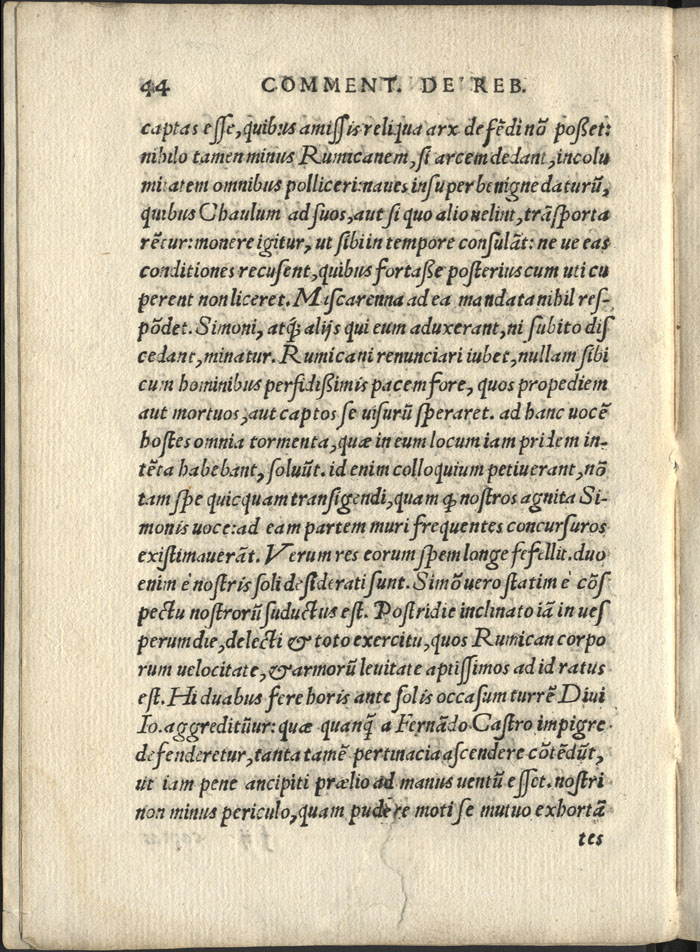 44 COMMENT. DE REB.
captas esse, quibus amissis reliqua arx defẽdi nõ poßet:
nihilo tamen minus Rumicanem, si arcem dedant, incolu
mitatem omnibus polliceri: naues insuper benigne daturũ,
quibus Chaulum ad suos, aut si quo alio uelint, trãsporta
rẽtur: monere igitur, ut sibi in tempore consulãt: ne ue eas
conditiones recusent, quibus fortaße posterius cum uti cu
perent non liceret. Mascarenna ad ea mandata nihil res-
põdet. Simoni, atq́; alijs qui eum aduxerant, ni subito dis
cedant, minatur. Rumicani renunciari iubet, nullam sibi
cum hominibus perfidißimis pacem fore, quos propediem
aut mortuos, aut captos se uisurũ speraret. ad hanc uocẽ
hostes omnia tormenta, quæ in eum locum iam pridem in-
tẽta habebant, soluũt. id enim colloquium petiuerant, nõ
tam spe quicquam transigendi, quam ꝙ nostros agnita Si-
monis uoce: ad eam partem muri frequentes concursuros
existimauerãt. Verum res eorum spem longe fefellit. duo
enim è nostris soli desiderati sunt. Simõ uero statim è cõs
pectu nostrorũ suductus est. Postridie inclinato iã in ues
perum die, delecti & toto exercitu, quos Rumican corpo
rum uelocitate, & armorũ leuitate aptissimos ad id ratus
est. Hi duabus fere horis ante solis occasum turrẽ Diui
Io. aggrediũur: quæ quanq̃ a Fernãdo Castro impigre
defenderetur, tanta tamẽ pertinacia ascendere cõtẽdũt,
ut iam pene ancipiti prælio ad manus uentũ esset. nostri
non minus periculo, quam pudore moti se mutuo exhortã
tes